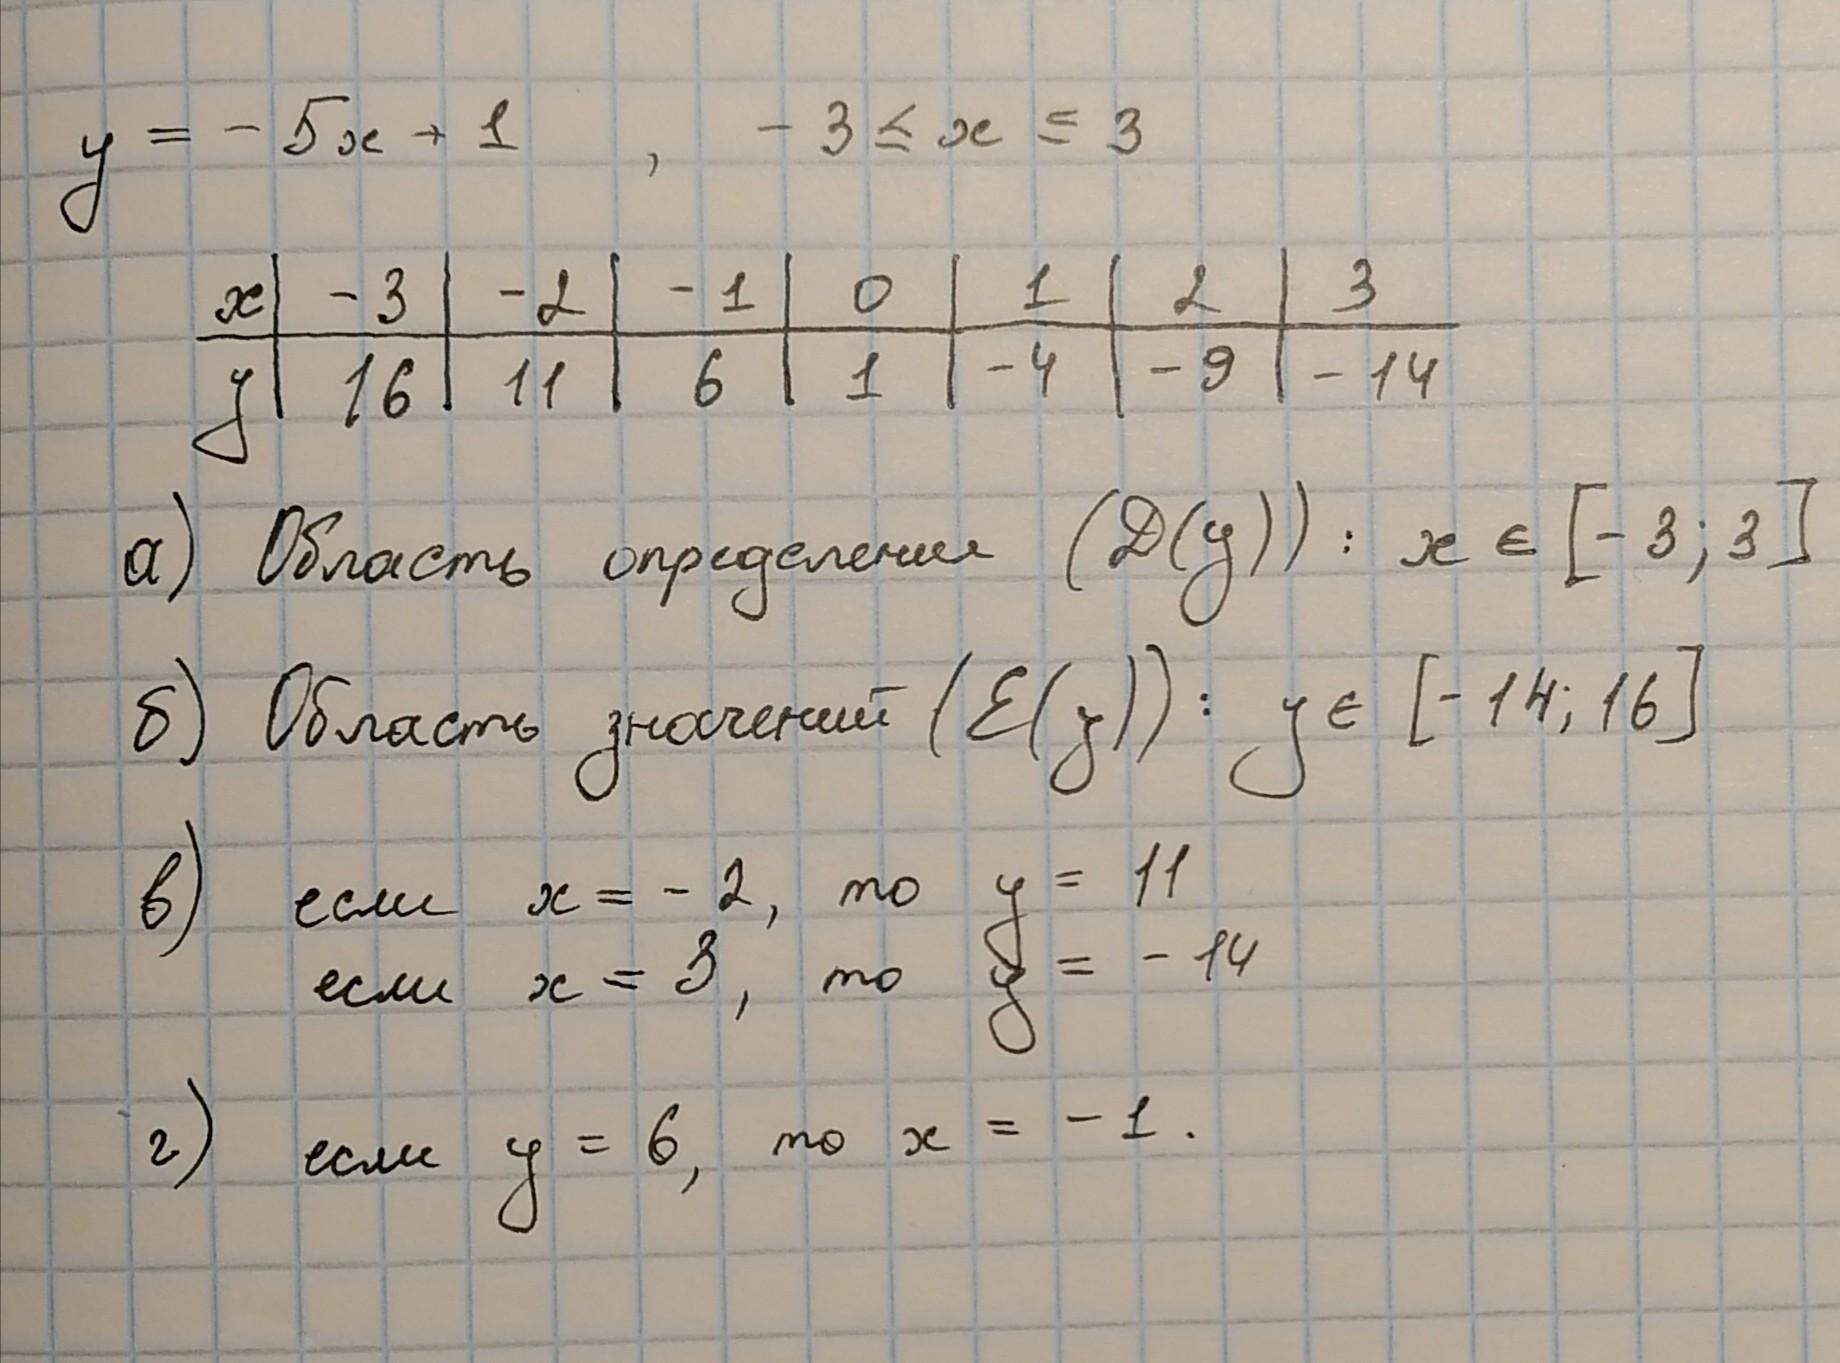 y = -5x + 1 , -3 ≤ x ≤ 3
x | -3 | -2 | -1 | 0 | 1 | 2 | 3
y | 16 | 11 | 6 | 1 | -4 | -9 | -14
а) Область определения (D(y)): x ∈ [-3; 3]
б) Область значений (E(y)): y ∈ [-14; 16]
в) если x = -2, то y = 11
если x = 3, то y = -14
г) если y = 6, то x = -1.